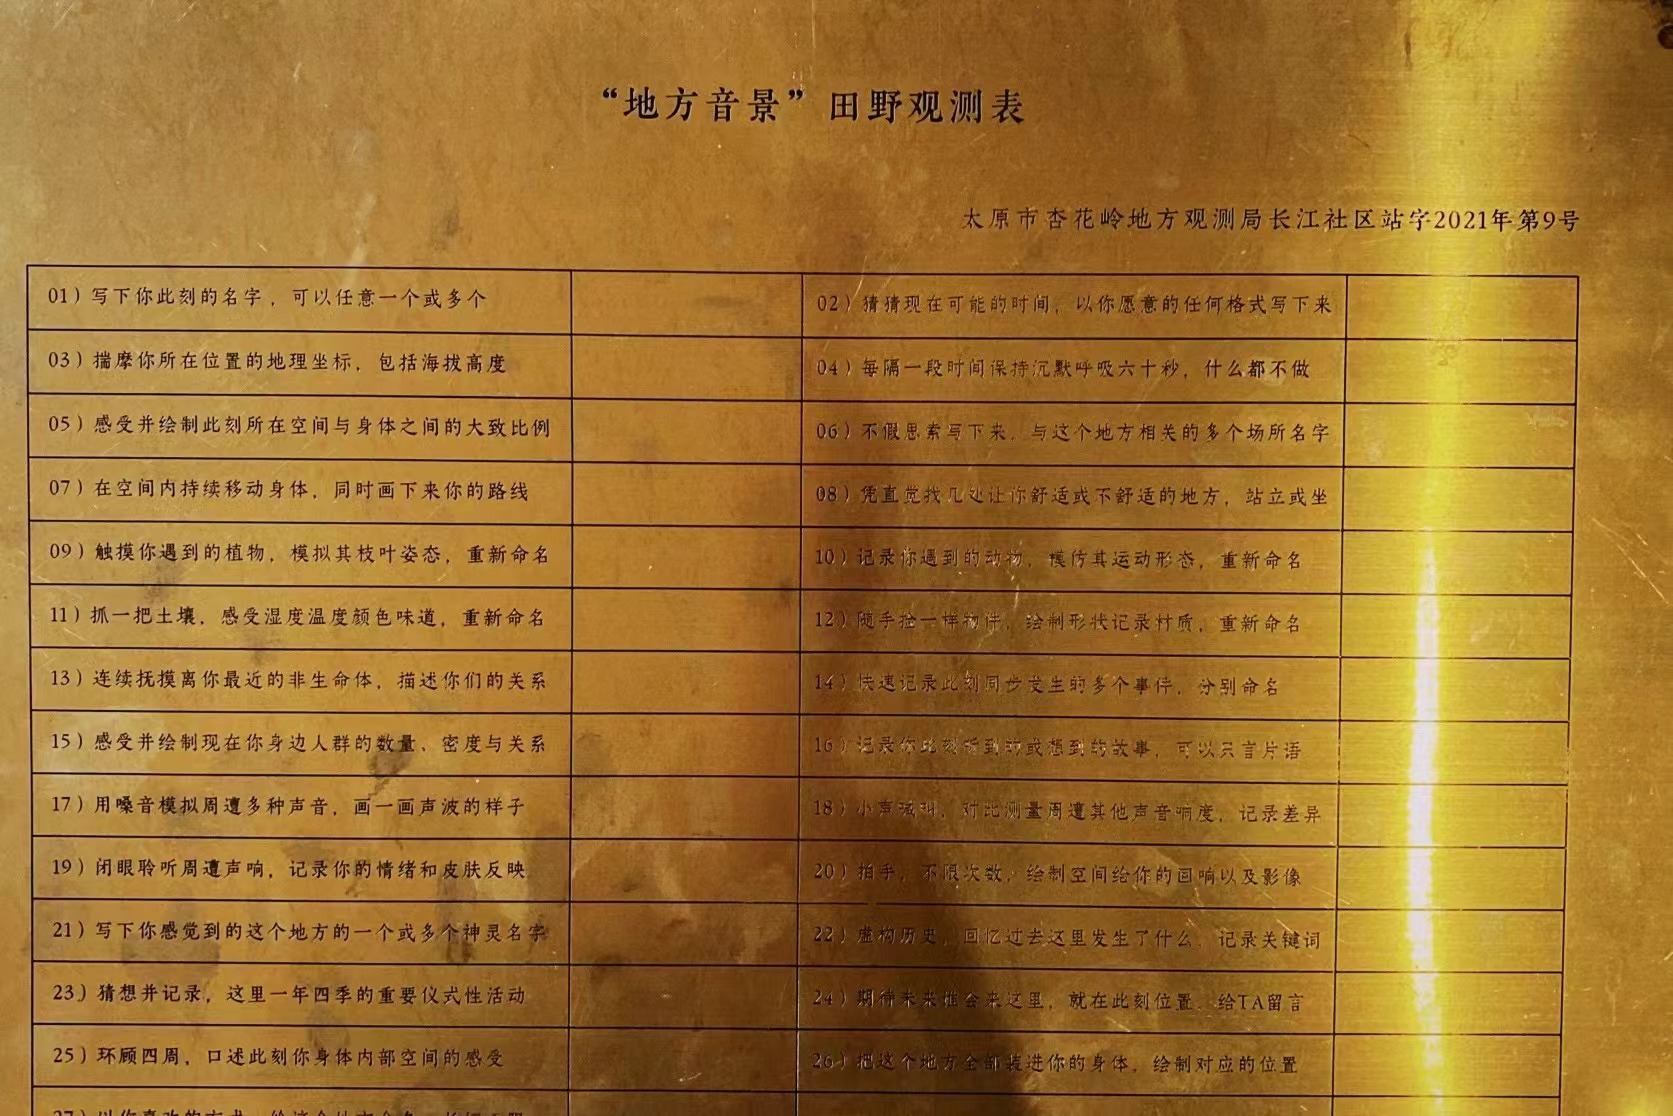 “地方音景”田野观测表
太原市杏花岭地方观测局长江社区站字2021年第9号
01）写下你此刻的名字，可以任意一个或多个
02）猜猜现在可能的时间，以你愿意的任何格式写下来
03）揣摩你所在位置的地理坐标，包括海拔高度
04）每隔一段时间保持沉默呼吸六十秒，什么都不做
05）感受并绘制此刻所在空间与身体之间的大致比例
06）不假思索写下来，与这个地方相关的多个场所名字
07）在空间内持续移动身体，同时画下来你的路线
08）凭直觉找几处让你舒适或不舒适的地方，站立或坐
09）触摸你遇到的植物，模拟其枝叶姿态，重新命名
10）记录你遇到的动物，模仿其运动形态，重新命名
11）抓一把土壤，感受湿度温度颜色味道，重新命名
12）随手捡一样物件，绘制形状记录材质，重新命名
13）连续抚摸离你最近的非生命体，描述你们的关系
14）快速记录此刻同步发生的多个事件，分别命名
15）感受并绘制现在你身边人群的数量、密度与关系
16）记录你此刻听到的或想到的故事，可以只言片语
17）用嗓音模拟周遭多种声音，画一画声波的样子
18）小声喊叫，对比测量周遭其他声音响度，记录差异
19）闭眼聆听周遭声响，记录你的情绪和皮肤反映
20）拍手，不限次数，绘制空间给你的回响以及影像
21）写下你感觉到的这个地方的一个或多个神灵名字
22）虚构历史，回忆过去这里发生了什么，记录关键词
23）猜想并记录，这里一年四季的重要仪式性活动
24）期待未来谁会来这里，就在此刻位置，给TA留言
25）环顾四周，口述此刻你身体内部空间的感受
26）把这个地方全部装进你的身体，绘制对应的位置